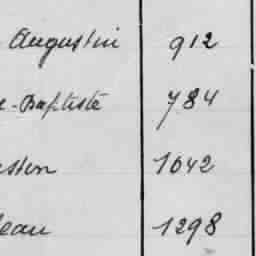 Augustin 912
e-Baptiste 784
ston 1042
eau 1298